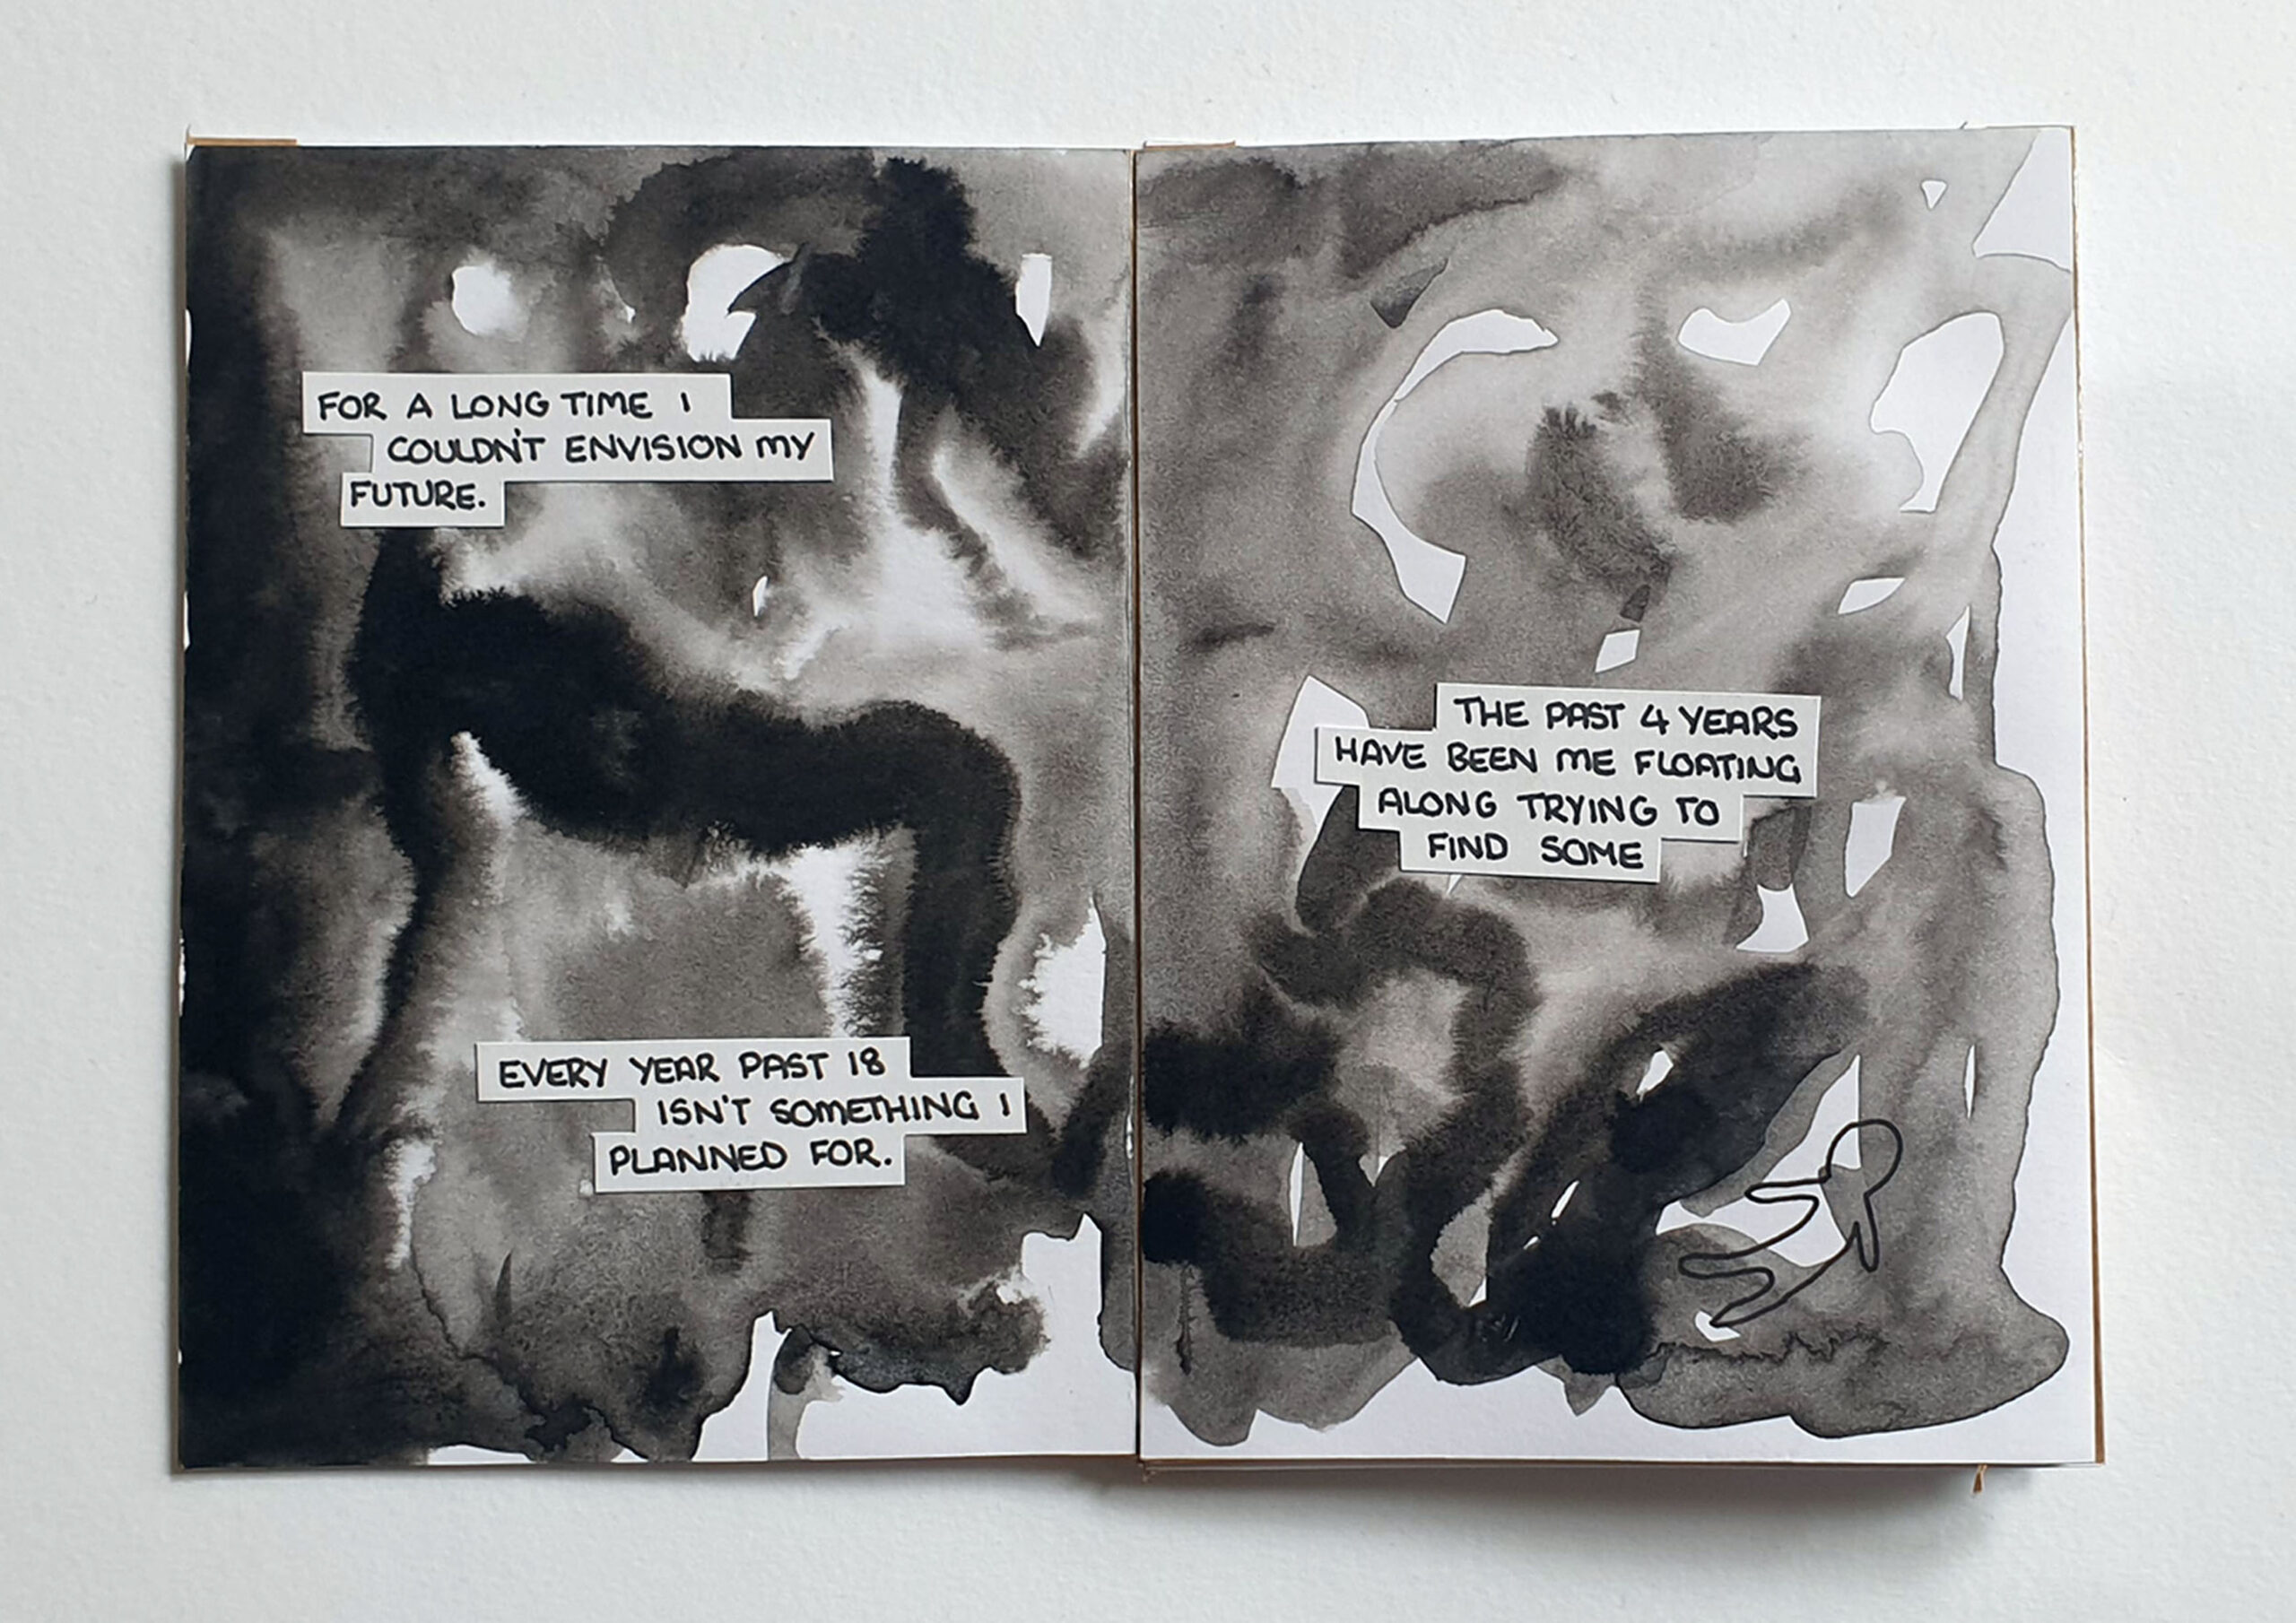 FOR A LONG TIME I
COULDN'T ENVISION MY
FUTURE.
EVERY YEAR PAST 18
ISN'T SOMETHING I
PLANNED FOR.
THE PAST 4 YEARS
HAVE BEEN ME FLOATING
ALONG TRYING TO
FIND SOME